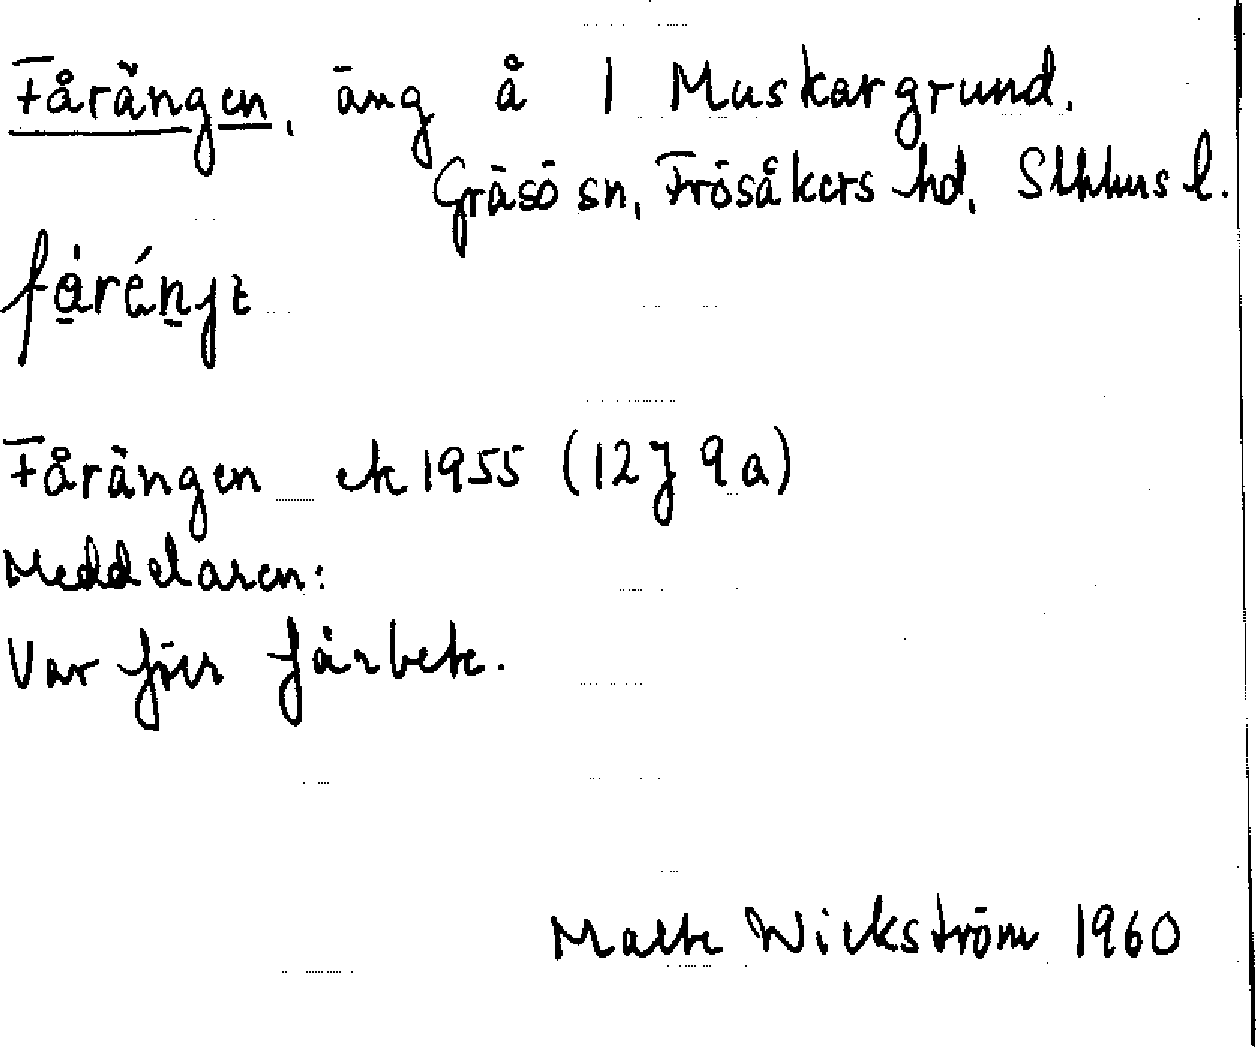 Fårängen, äng å 1 Muskargrund.
Gräsö sn, Frösåkers hd, Sthlms l.
Fårängen ek 1955 (12J 9a)
Meddelaren:
Var förr fårbete.
Malte Wickström 1960